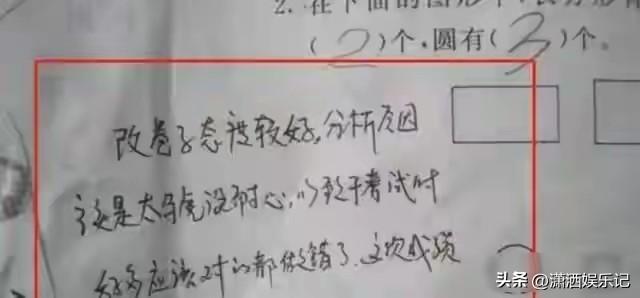 2. 在下面的图形中,长方形有
(2)个,圆有(3)个。
改卷子态度较好,分析原因
该是太马虎没耐心,以致于考试时
好多应该对的都做错了.这次成绩
头条 @潇洒娱乐记